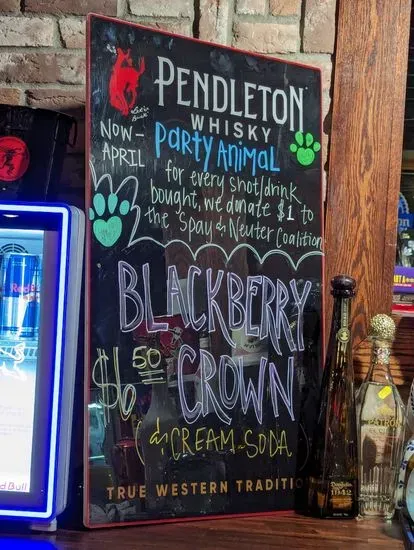 PENDLETON
WHISKY
Let'er
Buck
NOW -
APRIL
Party ANIMAL
for every shot/drink
bought, we donate $1 to
the Spay & Neuter Coalition
BLACKBERRY
$6.50
CROWN
& CREAM SODA
TRUE WESTERN TRADITIO
Red Bull
1942
PATRÓN
d Bull